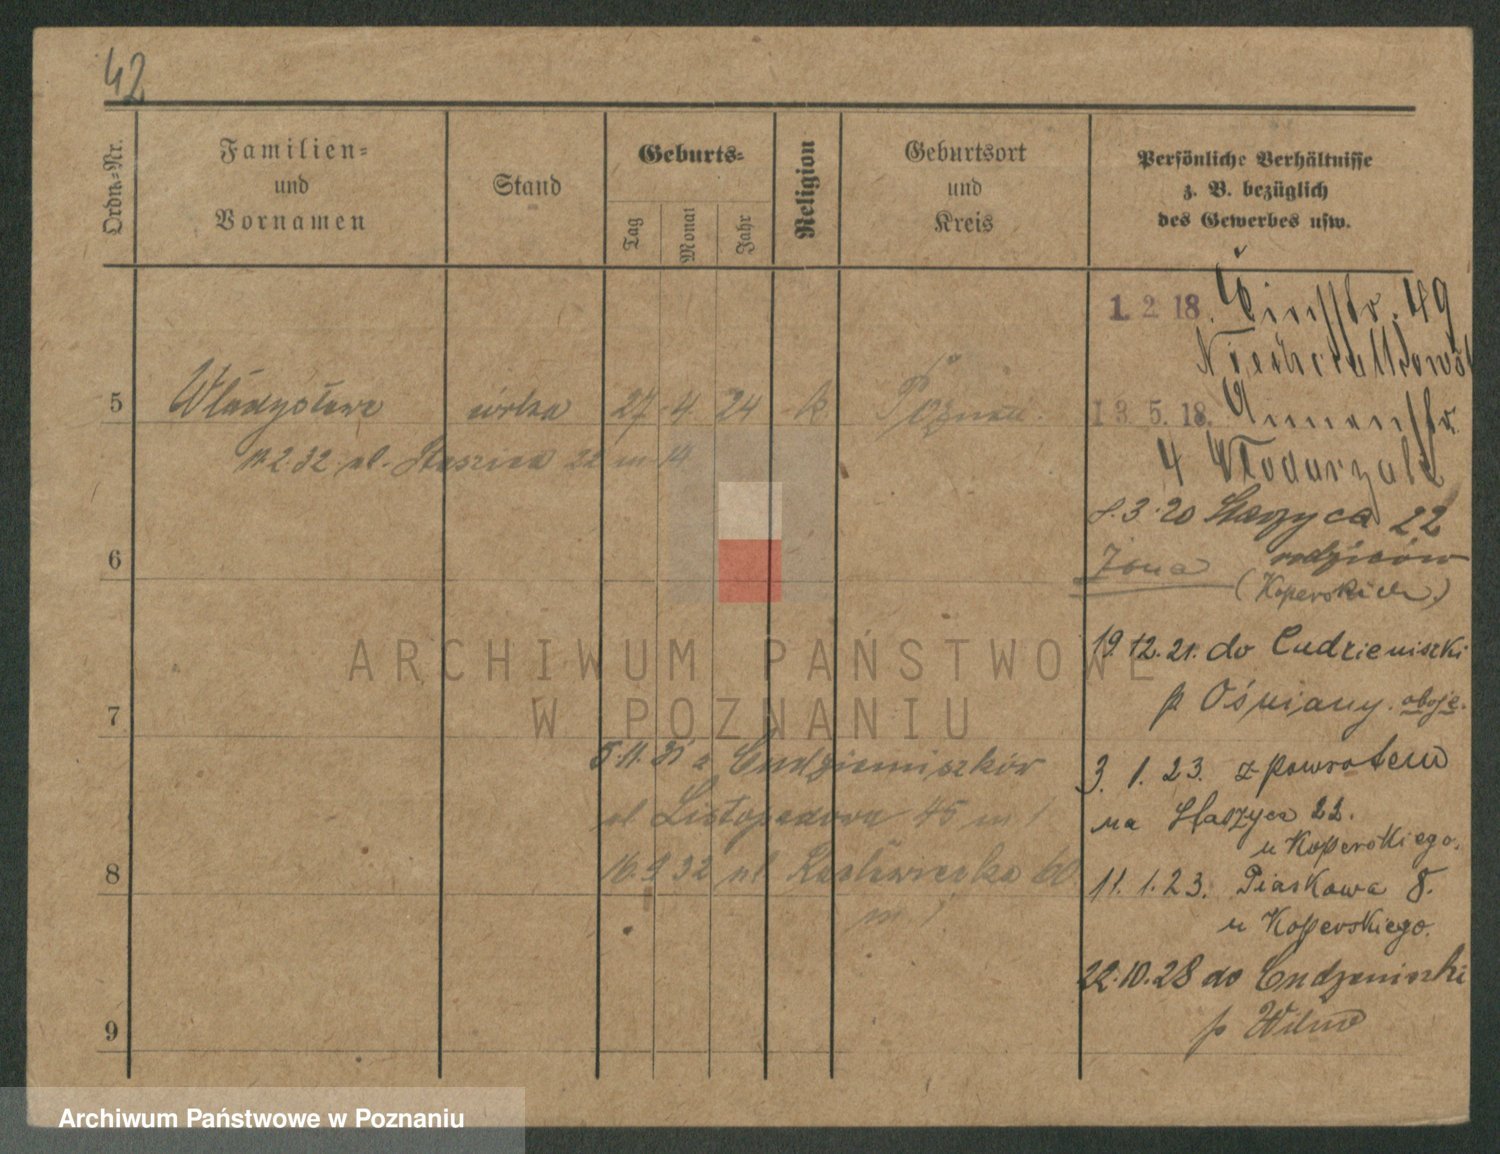 42
Ordn.-Nr.
Familien-
und
Vornamen
Stand
Geburts-
Tag
Monat
Jahr
Religion
Geburtsort
und
Kreis
Persönliche Verhältnisse
z. B. bezüglich
des Gewerbes usw.
1. 2. 18. 49
5 Władysława córka 27 4. 24 k. Poznań.
13. 5. 18.
11.2.32 ul. Staszica 22 m 14
4 Włodarzak
8.3.20 Staszyca 22
6
Żona rodziców
(Koperskich)
19.12.21. do Cudzieniszki
p Ośmiany. oboje.
7
5.11.31 z Cudzieniszków
3. 1. 23. z powrotem
ul Listopadowa 45 m 1
na Staszyca 22.
u Koperskiego.
8
16.9.32 ul 60
m 1
11. 1. 23. Piaskowa 8.
u Koperskiego.
22.10.28 do Cudzeniszki
p Wilno
9
ARCHIWUM PAŃSTWOWE
W POZNANIU
Archiwum Państwowe w Poznaniu